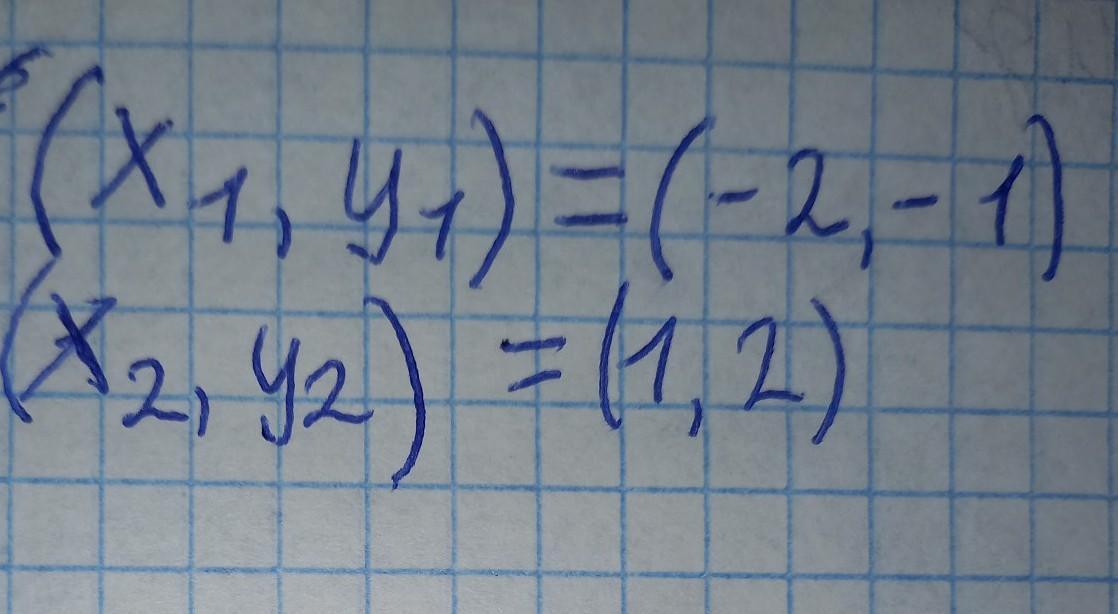 (x₁, y₁) = (-2, -1)
(x₂, y₂) = (1, 2)